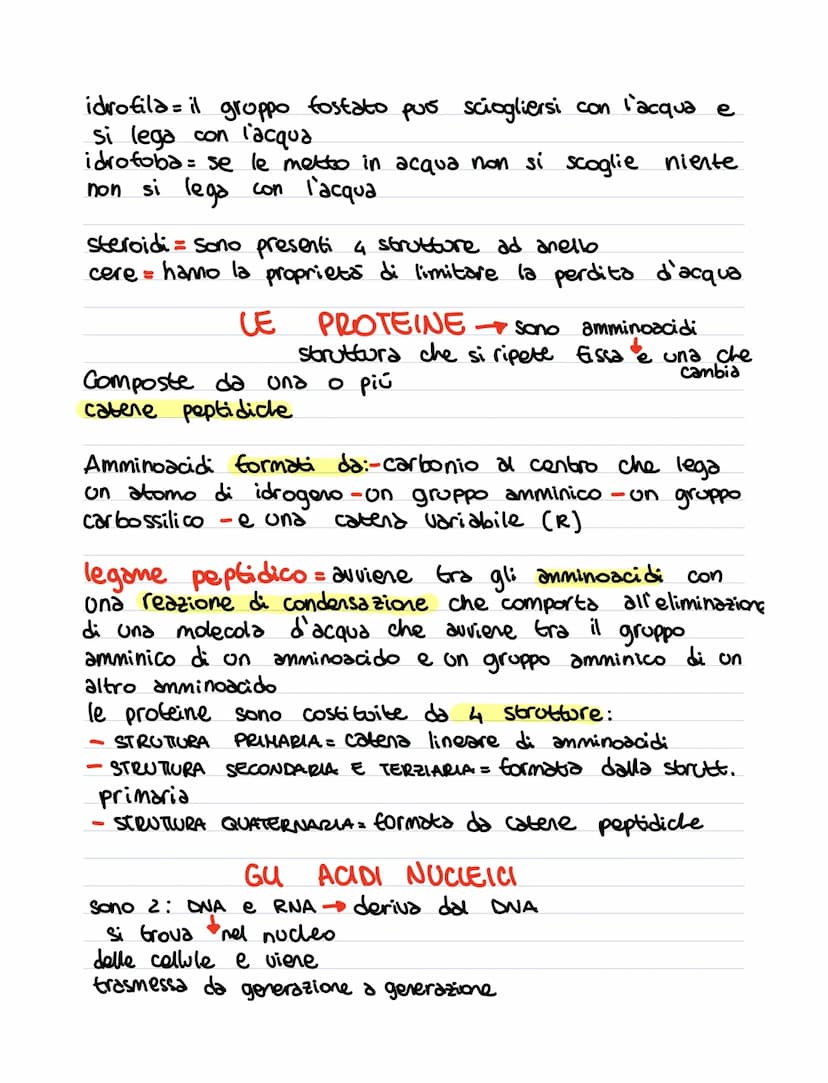 idrofila = il gruppo fosfato può sciogliersi con l'acqua e
si lega con l'acqua
idrofoba = se le metto in acqua non si scoglie niente
non si lega con l'acqua
steroidi = sono presenti 4 strutture ad anello
cere = hanno la proprietà di limitare la perdita d'acqua
LE PROTEINE → sono amminoacidi
struttura che si ripete fissa ↓ e una che
cambia
Composte da una o più
catene peptidiche
Amminoacidi formati da:-carbonio al centro che lega
un atomo di idrogeno -un gruppo amminico -un gruppo
carbossilico -e una catena variabile (R)
legame peptidico = avviene tra gli amminoacidi con
una reazione di condensazione che comporta all'eliminazione
di una molecola d'acqua che avviene tra il gruppo
amminico di un amminoacido e un gruppo amminico di un
altro amminoacido
le proteine sono costituite da 4 strutture:
- STRUTTURA PRIMARIA = catena lineare di amminoacidi
- STRUTTURA SECONDARIA E TERZIARIA = formata dalla strutt.
primaria
- STRUTTURA QUATERNARIA = formata da catene peptidiche
GLI ACIDI NUCLEICI
sono 2: DNA e RNA → deriva dal DNA
si trova ↓ nel nucleo
delle cellule e viene
trasmessa da generazione a generazione